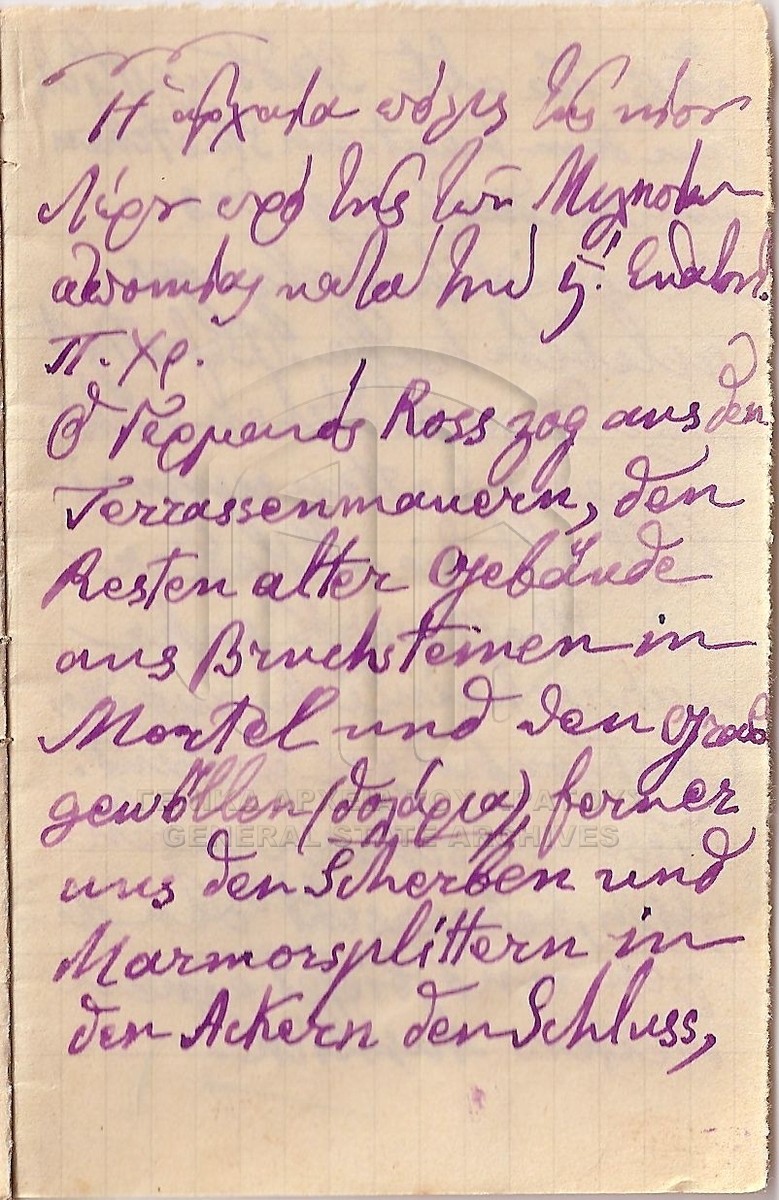 Ἡ ἀρχαία πόλις τῆς νήσου
Λέρου πρό τῆς τῶν Μιλησίων
ἀποικίας κατά τήν ς! Ἑκατοντ.
π. Χρ.
Ὁ Γερμανός Ross zog aus den
Terrassenmauern, den
Resten alter Gebäude
aus Bruchsteinen in
Mortel und den Grab
gewöllen (θολάρια), ferner
aus den Scherben und
Marmorsplittern in
den Ackern den Schluss,
ΓΕΝΙΚΑ ΑΡΧΕΙΑ ΤΟΥ ΚΡΑΤΟΥΣ
GENERAL STATE ARCHIVES